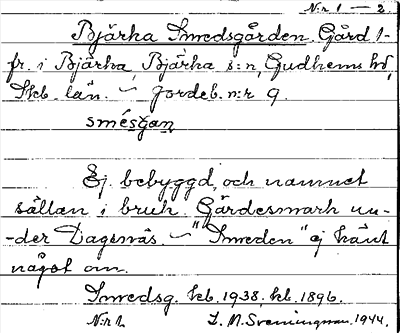 N:r 1 — 2.
Bjärka Smedsgården. Gård 1-
fr. i Bjärka, Bjärka s:n, Gudhems hd,
Skb. län. — Jordeb. n:r 9.
smésgan
Ej bebyggd, och namnet
sällan i bruk. Gärdesmark un-
-der Dagsnäs. — "Smeden" ej känt
något om.
Smedsg. kb. 1938, kb. 1896.
N:r 2. J. M. Sveningman. 1944.